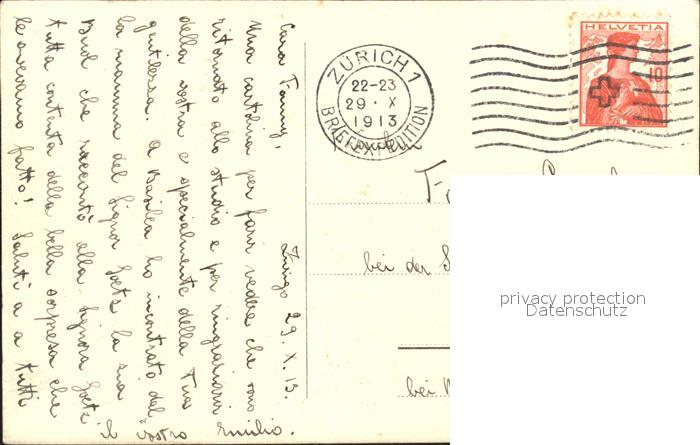 Zurigo 29. X. 13.
Cara Fanny,
Una cartolina per farvi vedere che sono
ritornato allo studio e per ringraziarvi
della vostra e specialmente della Tua
gentilezza. A Basilea ho incontrato dal
la mamma del Signor Goetz la sua
che raccontò alla Signora Goetz
tutta contenta della bella sorpresa che
le avevamo fatto! Saluti a a tutti
il vostro Emilio.
ZÜRICH 1
22-23
29. X
1913
BRIEFEXPEDITION
HELVETIA
10
bei der S
bei
privacy protection
Datenschutz